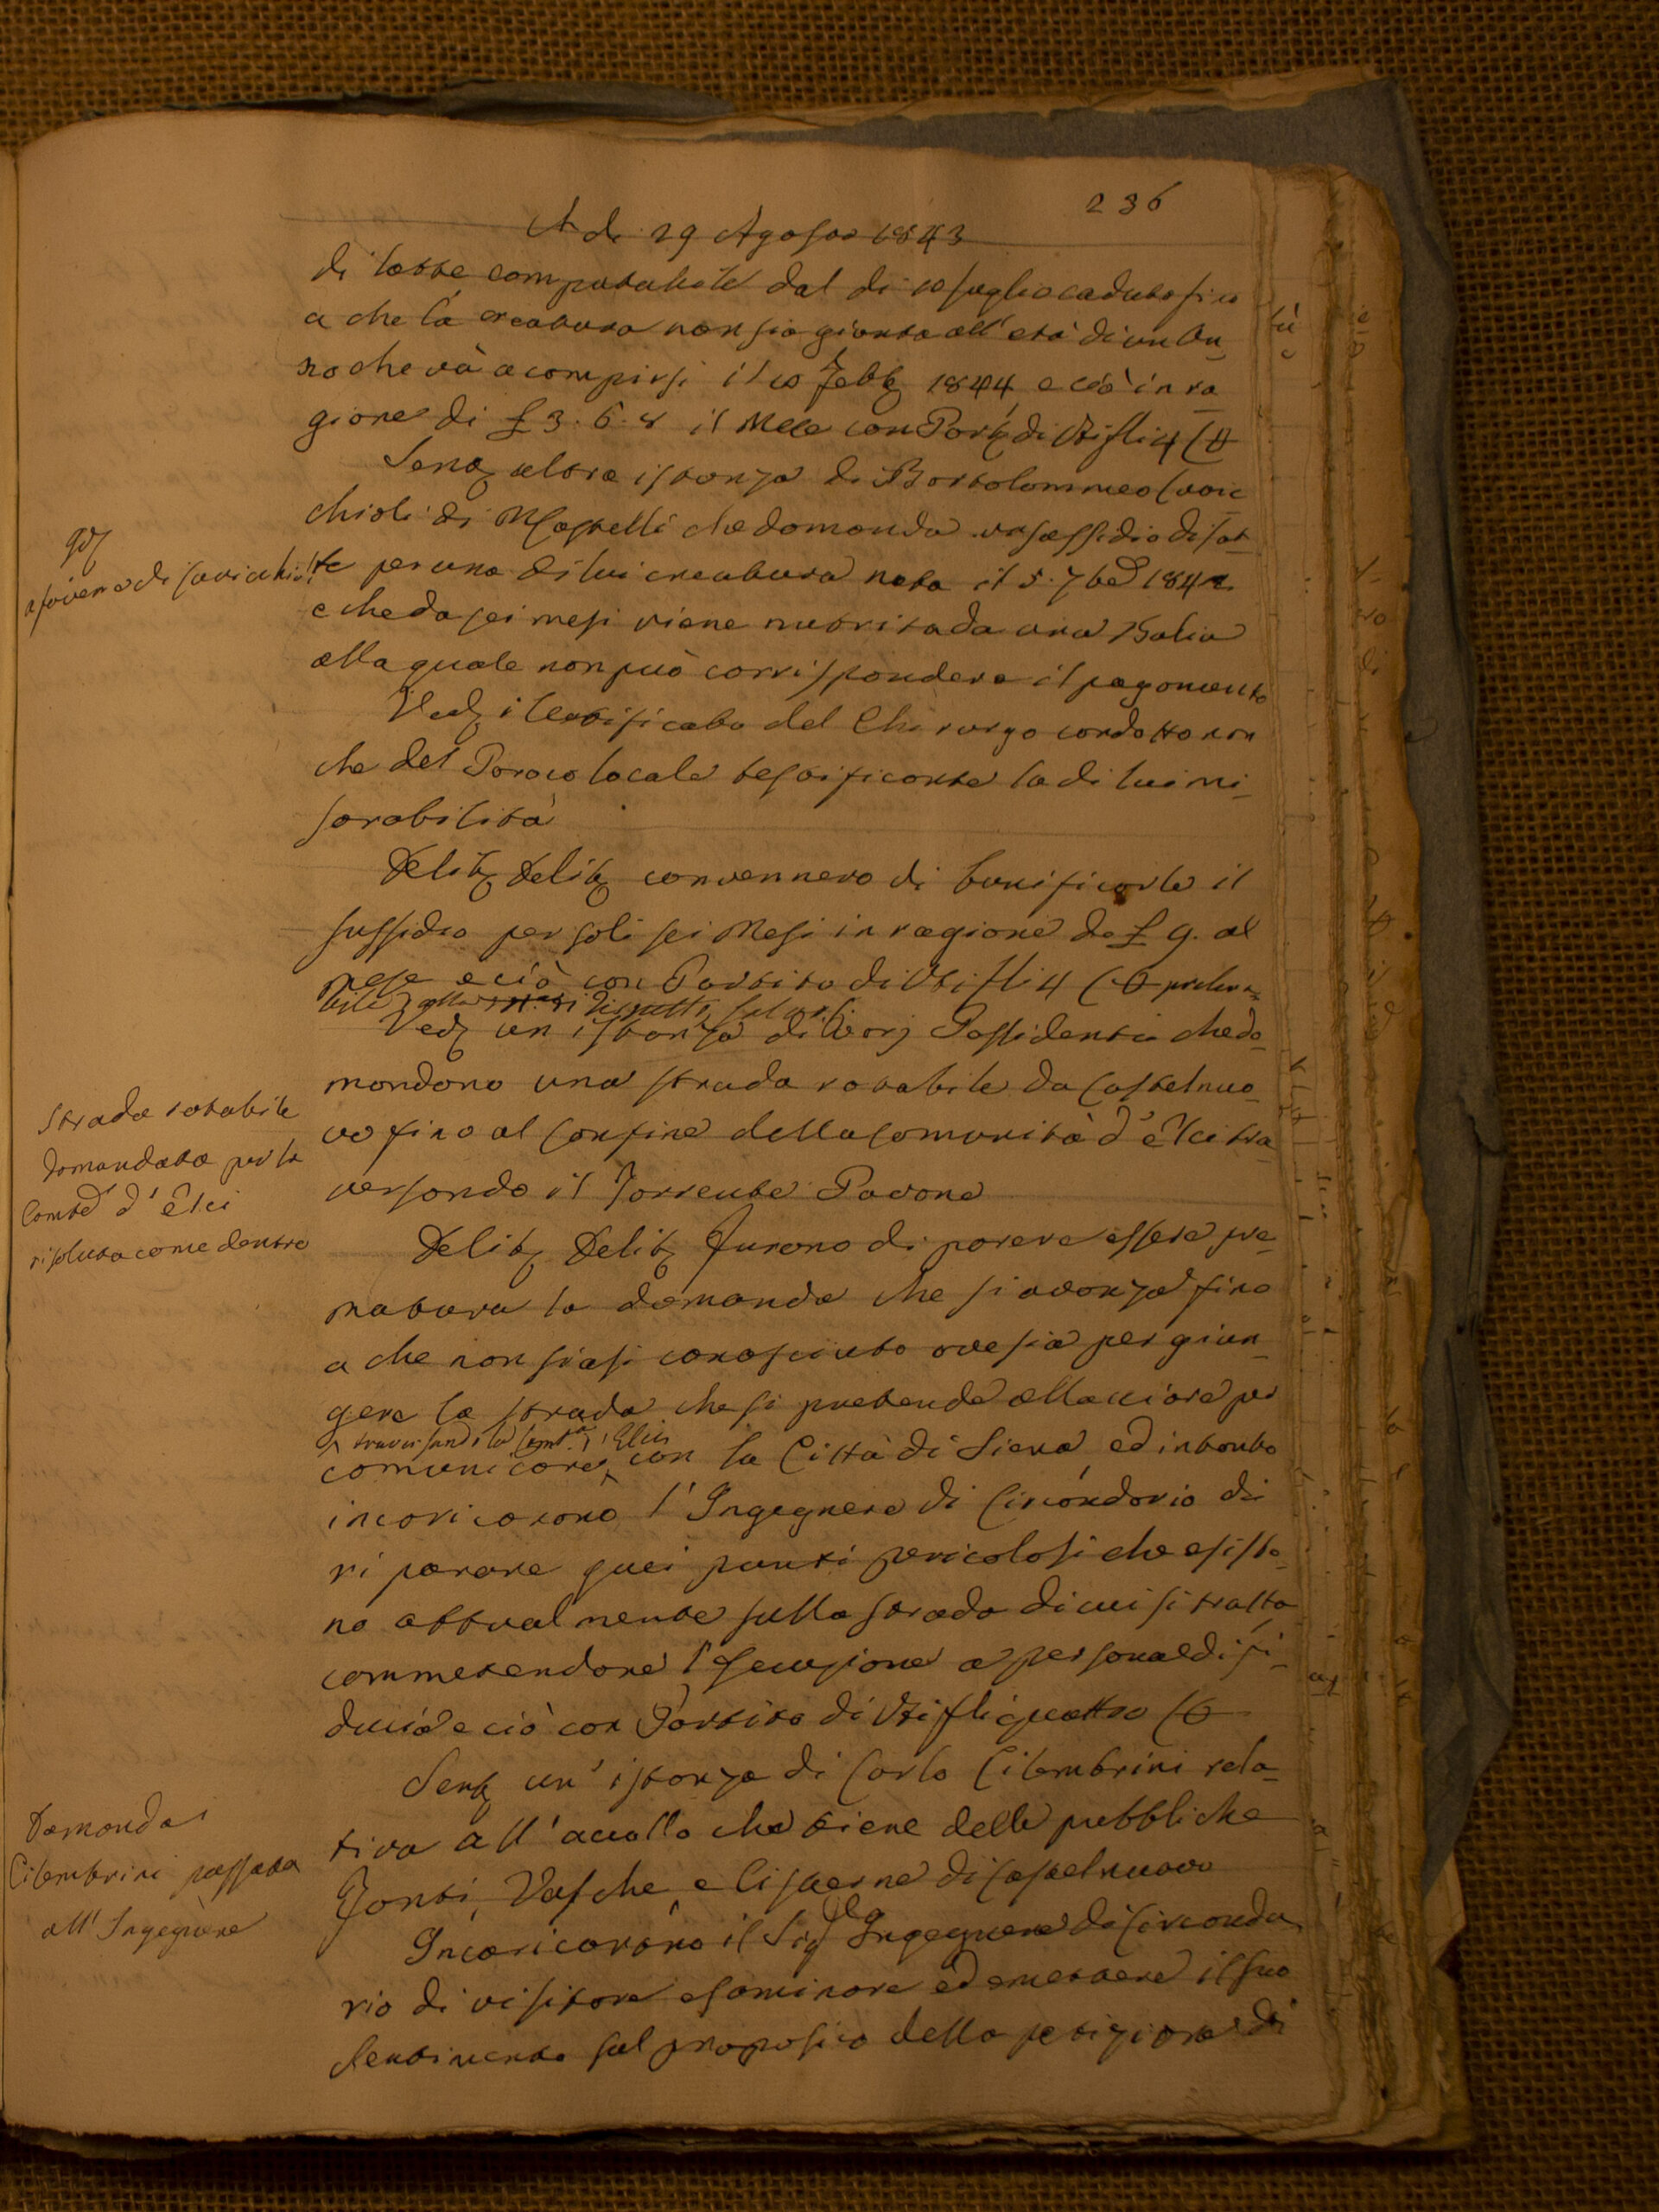 236
A di 29 Agosto 1843
di latte computabile dal di 10 Luglio caduto fino
a che la creatura non sia giunta all'età di un An_
no che và a compirsi il 10 Febb 1844 e ciò in ra_
gione di £ 3.6.8 il Mese con Part di Voti fli 4 C 0
Sent altra istanza di Bartolommeo Cavic
chioli di Mosselli che domanda un sussidio di lat_
te per una di lui creatura nata il 5. 7bre 1842
e che da sei mesi viene nutrita da una Balia
alla quale non può corrispondere il pagamento
Ved i Certificato del Chirurgo condotto non
che del Paroco locale testificante la di lui mi_
serabilità
Delib Delib convennero di bonificarle il
sussidio per soli sei Mesi in ragione di £ 9. al
mese e ciò con Partito di Voti fli 4 C 0
Ved un istanza di varj Possidenti che do_
mandono una strada rotabile da Castelnuo_
vo fino al confine della Comunità d'Elci tra_
versando il Torrente Pavone
Delib Delib Furono di parere essere pre_
matura la domanda che si avanza fino
a che non siasi conosciuto ove sia per giun_
gere la strada che si pretende allacciare per
traversando la Comtà d'Elci
comunicare con la Città di Siena, ed intanto
incaricarono l'Ingegnere di Circondario di
riparare quei punti pericolosi che esisto_
no attualmente sulla strada di cui si tratta
commetendone l'Esecuzione a persona di fi_
ducia e ciò con Partito di Voti fli quattro C 0
Sent un'istanza di Carlo Cilembrini rela_
tiva all'accollo che tiene delle pubbliche
Fonti, Vasche, e Cisterne di Castelnuovo
Incaricarono il Sig Ingegnere di Circonda_
rio di visitare esaminare ed emettere il suo
sentimento sul proposito della petizione di
a favore di Cavicchioli
Strada rotabile
domandata per la
Comtà d'Elci
risoluta come dentro
Domanda
Cilembrini passata
all'Ingegnere